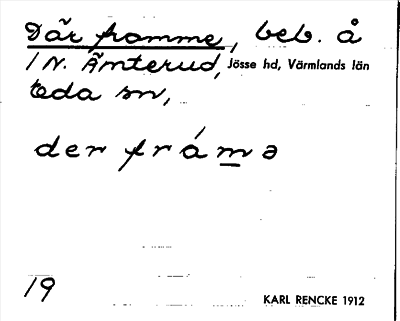 Där framme, beb. å
1 N. Ämterud, Jösse hd, Värmlands län
Eda sn,
der fráma̲ə
19 KARL RENCKE 1912